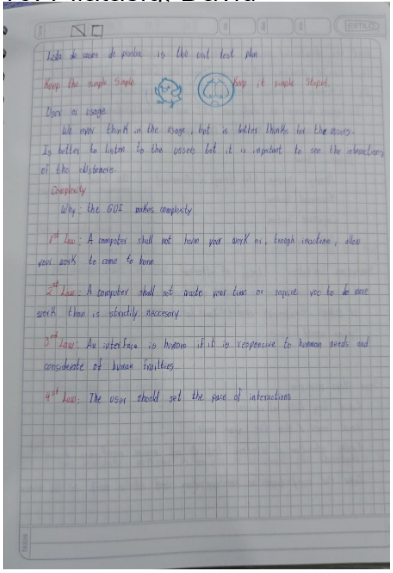 Lista de casos de prueba is the out test plan
Keep the simple Simple Keep it simple Stupid.
User or usage
We ever think in the usage, but is better thinks for the users.
Is better to listen to the users but it is important to see the interactions
of the
Complexity
Why: the GUI makes complexity
1st Law: A computer shall not harm your work or, trough inaction, allow
your work to come to harm.
2nd Law: A computer shall not waste your time or require you to do more
work than is strictly necesary
3rd Law: An interface is human if it is responsive to human needs and
considerate of human frailties
4st Law: The user should set the pace of interactions